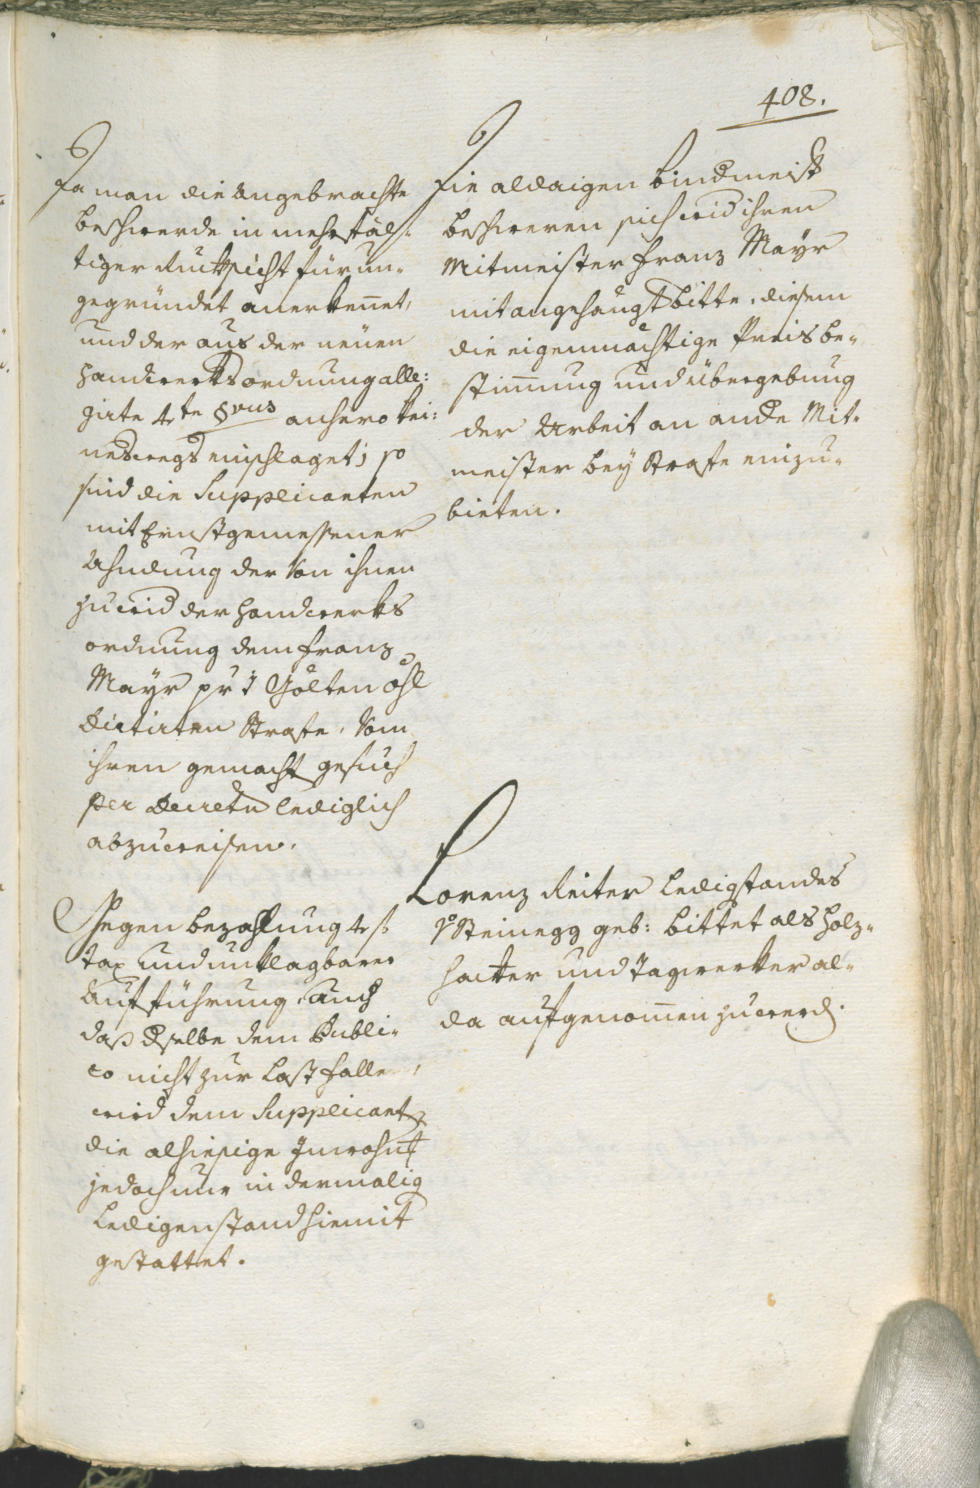 408.
Da man die Angebrachte
beschwerde in mehrfäl-
tiger Rucksicht für un-
gegründet anerkennet,
und der aus der neuen
Handwerksordnung alle:
girte 4te §vus anhero kei:
neswegs einschlaget; so
sind die Supplicanten
mit Ernstgemessener
Ahndung der Von ihnen
zuwid der Handwerks
ordnung dem Franz
Mayr pr 1 Gölten öhl
dictirten Straffe, Vom
ihren gemacht gesuch
per Decretu lediglich
abzuweisen.
Gegen bezahlung 4 f
tax und unklagbarer
Aufführung, Auch
daß dselbe dem Publi-
co nicht zur Last falle,
wird dem Supplicant
die alhiesige Inwohn
jedoch nur in dermalig
Ledigenstand hiemit
gestattet.
Die aldaigen Bindmeist
beschweren sich wid ihren
Mitmeister Franz Mayr
mit angehängt bitte, diesem
die eigenmächtige Preis be-
stimung und übergebung
der Arbeit an ande Mit-
meister bey Strafe einzu-
bieten.
Lorenz Reiter Ledigstandes
Vo Steinegg geb: bittet als Holz-
hacker und Tagwerker al-
da aufgenommen zu werd.